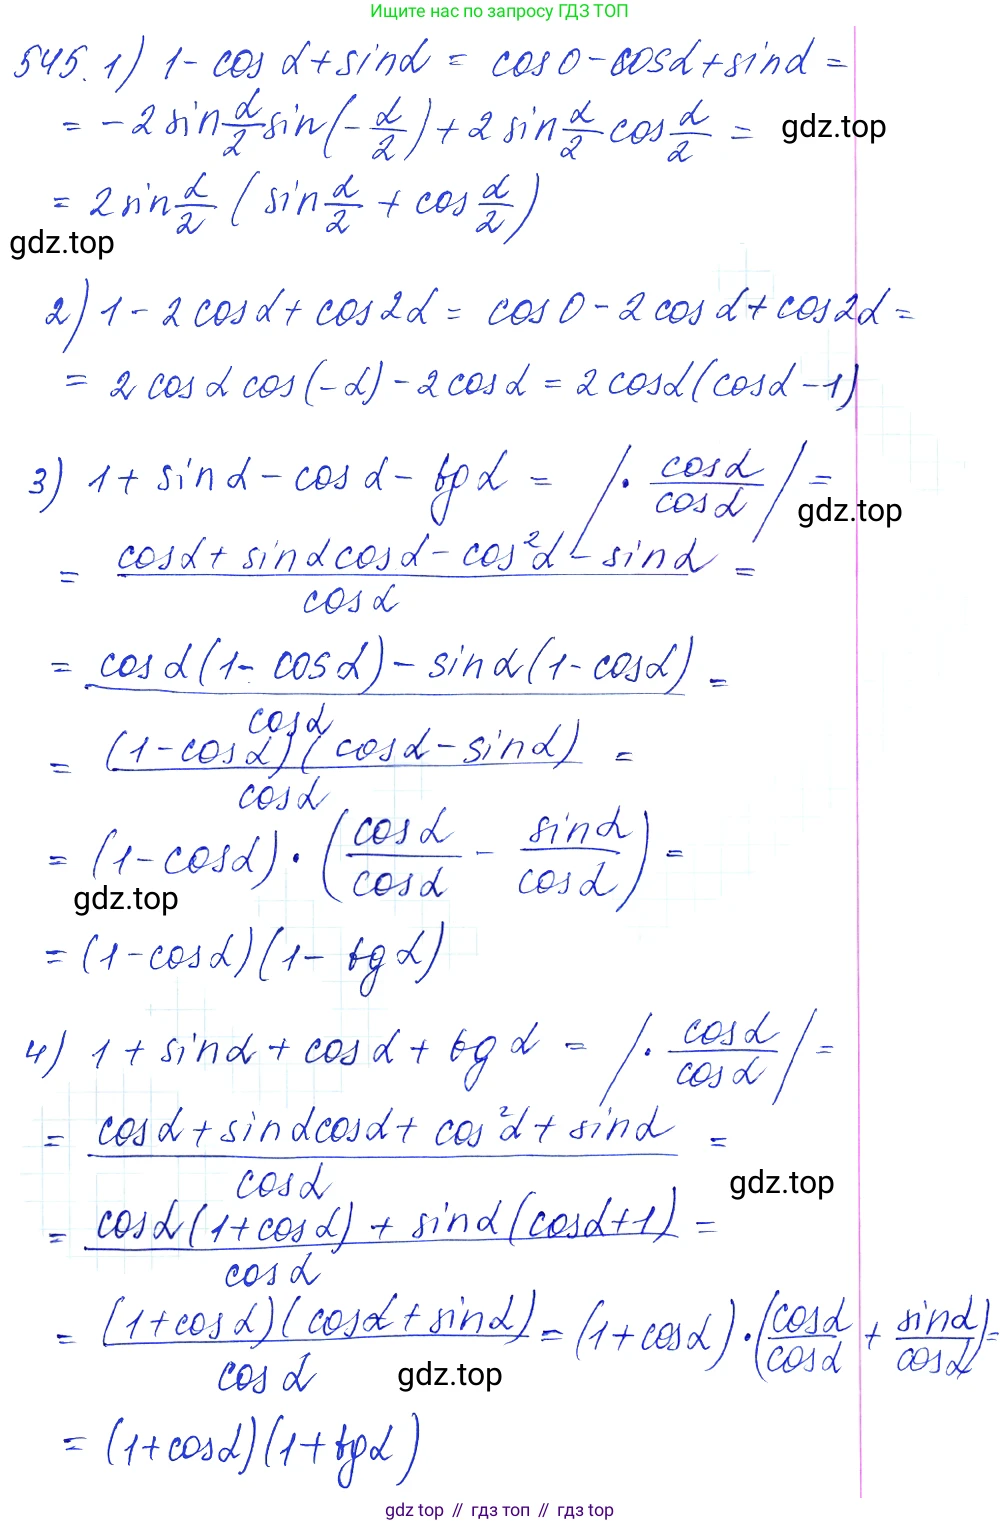 Ищите нас по запросу ГДЗ ТОП
545. 1) 1 - cos α + sin α = cos 0 - cos α + sin α =
= -2 sin α/2 sin(-α/2) + 2 sin α/2 cos α/2 = gdz.top
= 2 sin α/2 (sin α/2 + cos α/2)
gdz.top
2) 1 - 2 cos α + cos 2α = cos 0 - 2 cos α + cos 2α =
= 2 cos α cos(-α) - 2 cos α = 2 cos α (cos α - 1)
3) 1 + sin α - cos α - tg α = /· cos α/cos α/ =
gdz.top
= (cos α + sin α cos α - cos² α - sin α)/cos α =
= (cos α (1 - cos α) - sin α (1 - cos α))/cos α =
= (1 - cos α)(cos α - sin α)/cos α =
= (1 - cos α) · (cos α/cos α - sin α/cos α) =
gdz.top
= (1 - cos α)(1 - tg α)
4) 1 + sin α + cos α + tg α = /· cos α/cos α/ =
= (cos α + sin α cos α + cos² α + sin α)/cos α =
gdz.top
= (cos α (1 + cos α) + sin α (cos α + 1))/cos α =
= (1 + cos α)(cos α + sin α)/cos α = (1 + cos α) · (cos α/cos α + sin α/cos α) =
gdz.top
= (1 + cos α)(1 + tg α)
gdz top // гдз топ // гdz top